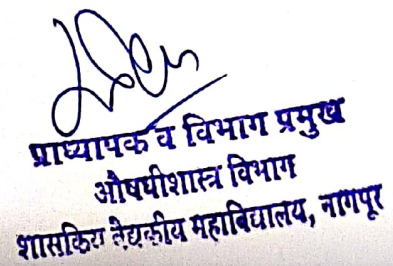 प्राध्यापक व विभाग प्रमुख
औषधीशास्त्र विभाग
शासकिय वैद्यकीय महाविद्यालय, नागपूर